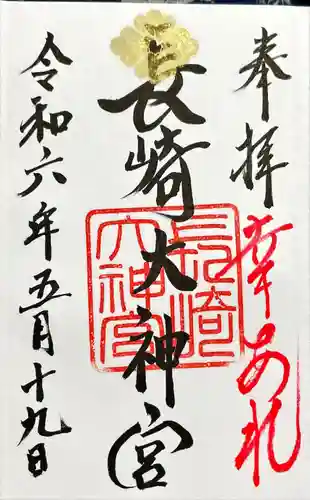 奉拝
幸あれ
長崎大神宮
長崎大神宮
令和六年五月十九日